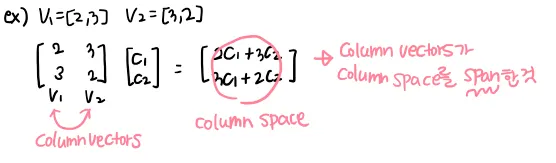 ex) V₁=[2,3] V₂=[3,2]
[2 3; 3 2] [C₁; C₂] = [2C₁+3C₂; 3C₁+2C₂] → Column vectors가 Column space를 span한것
V₁ V₂
Column vectors
column space